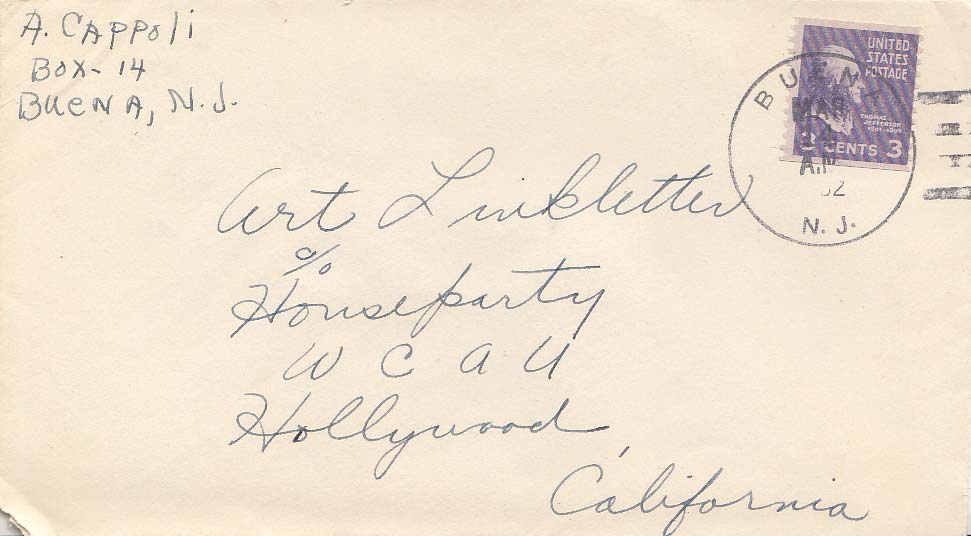 A. CAPPOli
BOX- 14
BUENA, N.J.
UNITED
STATES
POSTAGE
THOMAS
JEFFERSON
3 CENTS 3
BUENA
MAR
A.M
N. J.
Art Linkletter
c/o
Houseparty
W C A U
Hollywood,
California